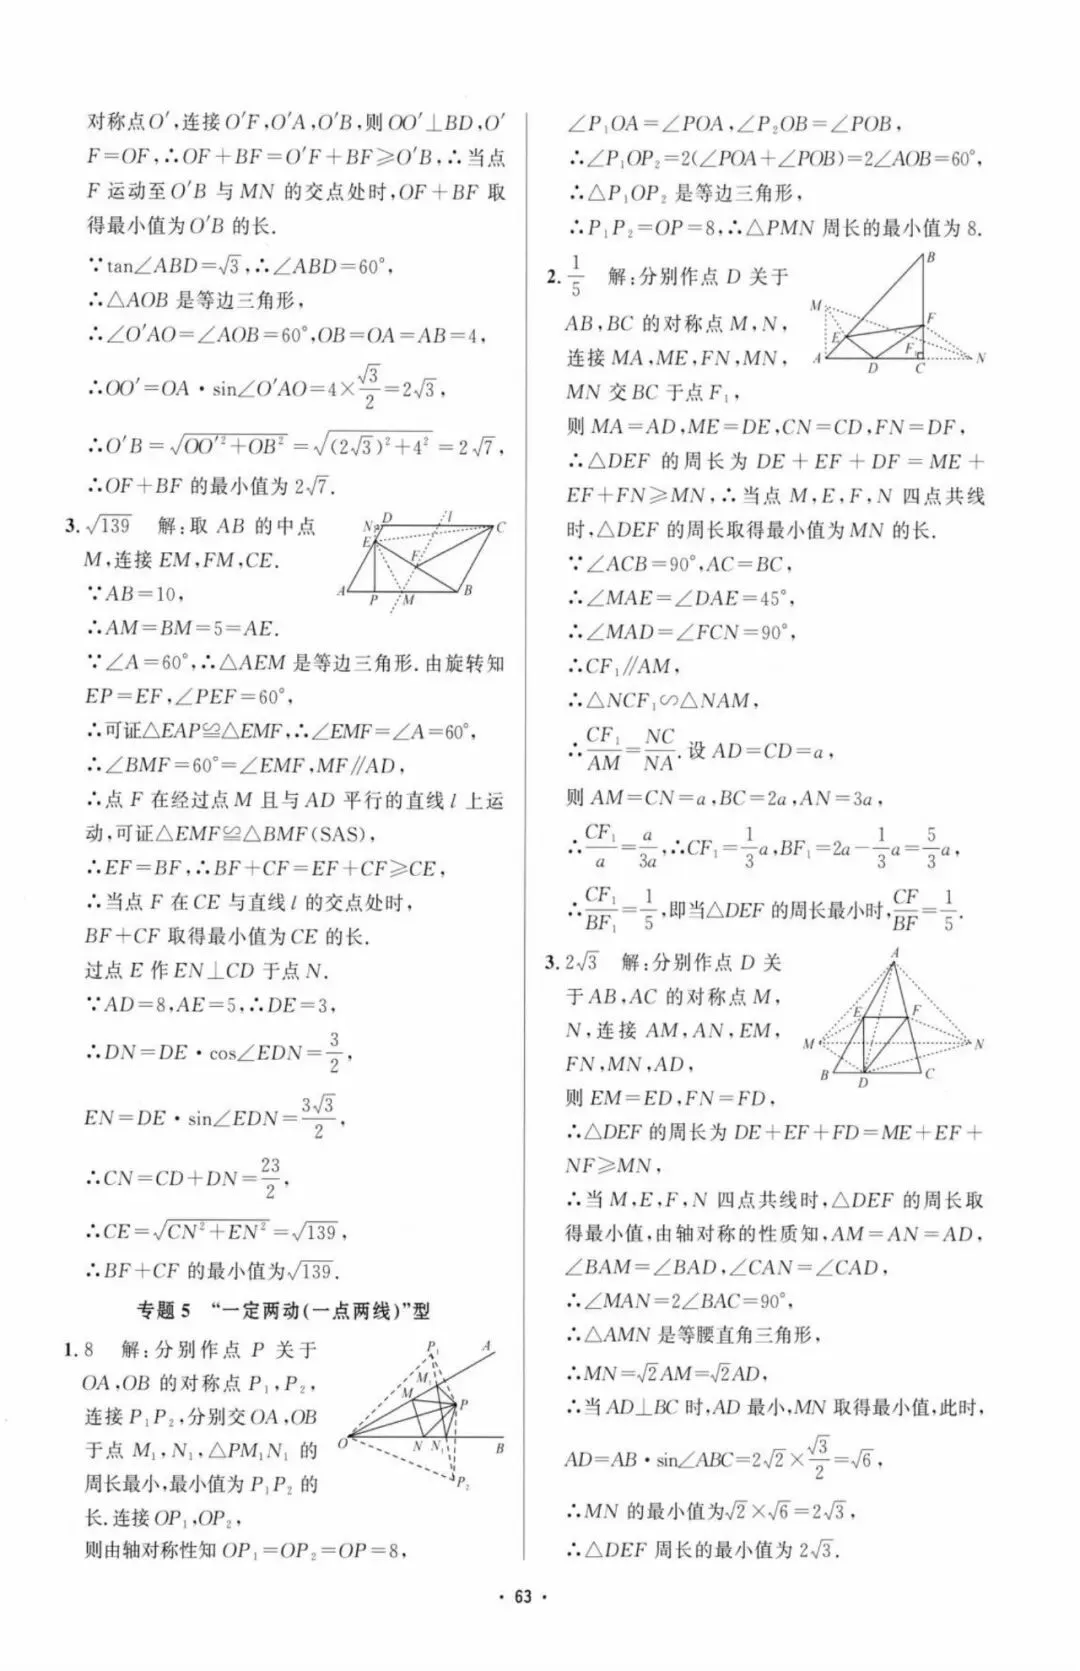 对称点O′,连接O′F,O′A,O′B,则OO′⊥BD,O′
F=OF,∴OF+BF=O′F+BF≥O′B,∴当点
F 运动至O′B 与 MN 的交点处时,OF+BF 取
得最小值为O′B 的长.
∵tan∠ABD=√3,∴∠ABD=60°,
∴△AOB 是等边三角形,
∴∠O′AO=∠AOB=60°,OB=OA=AB=4,
∴OO′=OA·sin∠O′AO=4×√3/2=2√3,
∴O′B=√(OO′²+OB²)=√((2√3)²+4²)=2√7,
∴OF+BF 的最小值为2√7.
3.√139 解:取 AB 的中点
M,连接EM,FM,CE.
∵AB=10,
∴AM=BM=5=AE.
∵∠A=60°,∴△AEM 是等边三角形.由旋转知
EP=EF,∠PEF=60°,
∴可证△EAP≌△EMF,∴∠EMF=∠A=60°,
∴∠BMF=60°=∠EMF,MF∥AD,
∴点 F 在经过点M 且与AD 平行的直线l 上运
动,可证△EMF≌△BMF(SAS),
∴EF=BF,∴BF+CF=EF+CF≥CE,
∴当点 F 在CE 与直线l 的交点处时,
BF+CF 取得最小值为CE 的长.
过点 E 作EN⊥CD 于点 N.
∵AD=8,AE=5,∴DE=3,
∴DN=DE·cos∠EDN=3/2,
EN=DE·sin∠EDN=3√3/2,
∴CN=CD+DN=23/2,
∴CE=√(CN²+EN²)=√139,
∴BF+CF 的最小值为√139.
N D l C
E F
A P M B
专题5 “一定两动(一点两线)”型
1.8 解:分别作点 P 关于
OA,OB 的对称点P₁,P₂,
连接P₁P₂,分别交OA,OB
于点 M₁,N₁,△PM₁N₁ 的
周长最小,最小值为 P₁P₂ 的
长.连接OP₁,OP₂,
则由轴对称性知OP₁=OP₂=OP=8,
P₁ A
M₁
M P
O N N₁ B
P₂
∠P₁OA=∠POA,∠P₂OB=∠POB,
∴∠P₁OP₂=2(∠POA+∠POB)=2∠AOB=60°,
∴△P₁OP₂ 是等边三角形,
∴P₁P₂=OP=8,∴△PMN 周长的最小值为8.
2.1/5 解:分别作点 D 关于
AB,BC 的对称点M,N,
连接MA,ME,FN,MN,
MN 交BC 于点F₁,
则MA=AD,ME=DE,CN=CD,FN=DF,
∴△DEF 的周长为 DE+EF+DF=ME+
EF+FN≥MN,∴当点 M,E,F,N 四点共线
时,△DEF 的周长取得最小值为MN 的长.
∵∠ACB=90°,AC=BC,
∴∠MAE=∠DAE=45°,
∴∠MAD=∠FCN=90°,
∴CF₁∥AM,
∴△NCF₁∽△NAM,
∴CF₁/AM=NC/NA.设 AD=CD=a,
则 AM=CN=a,BC=2a,AN=3a,
∴CF₁/a=a/3a,∴CF₁=1/3a,BF₁=2a-1/3a=5/3a,
∴CF₁/BF₁=1/5,即当△DEF 的周长最小时,CF/BF=1/5.
B
M F
E F₁
A D C N
3.2√3 解:分别作点 D 关
于AB,AC 的对称点 M,
N,连接 AM,AN,EM,
FN,MN,AD,
则EM=ED,FN=FD,
∴△DEF 的周长为 DE+EF+FD=ME+EF+
NF≥MN,
∴当 M,E,F,N 四点共线时,△DEF 的周长取
得最小值,由轴对称的性质知,AM=AN=AD,
∠BAM=∠BAD,∠CAN=∠CAD,
∴∠MAN=2∠BAC=90°,
∴△AMN 是等腰直角三角形,
∴MN=√2AM=√2AD,
∴当AD⊥BC 时,AD 最小,MN 取得最小值,此时,
AD=AB·sin∠ABC=2√2×√3/2=√6,
∴MN 的最小值为√2×√6=2√3,
∴△DEF 周长的最小值为2√3.
A
E F
M N
B D C
· 63 ·